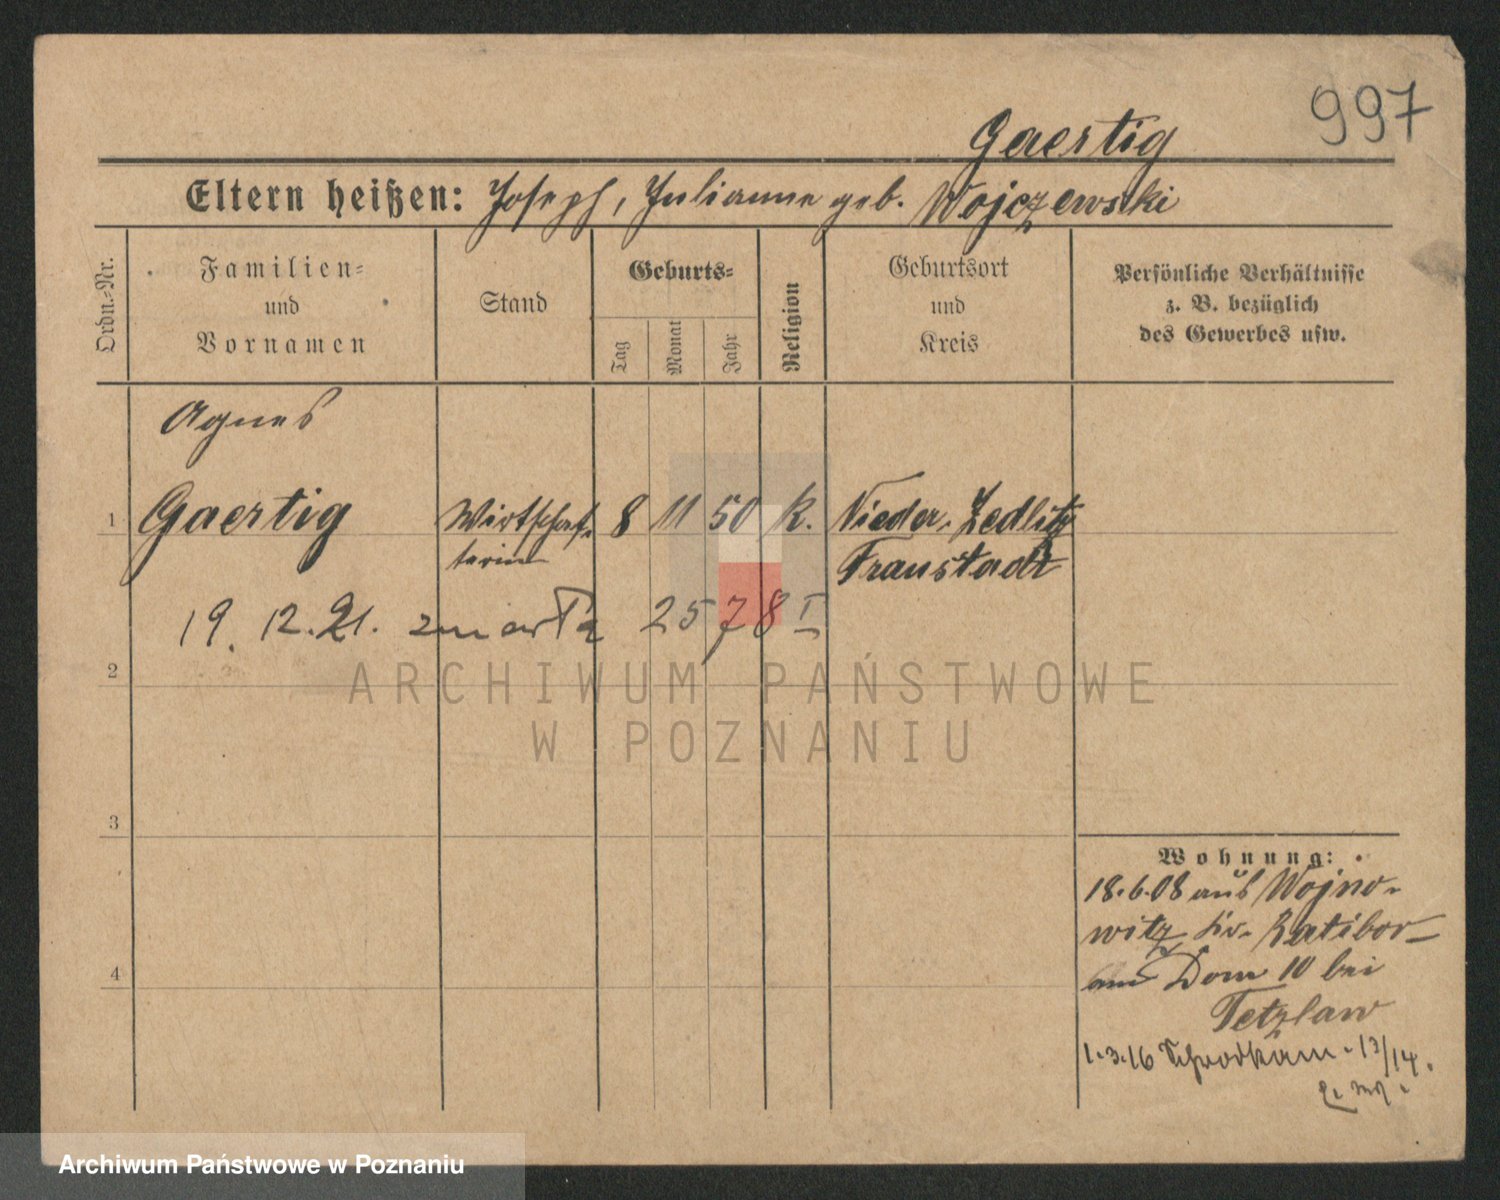 997
Gaertig
Eltern heißen: Joseph, Julianne geb. Wojczewski
Ordn.-Nr.
Familien-
und
Vornamen
Stand
Geburts-
Tag
Monat
Jahr
Religion
Geburtsort
und
Kreis
Persönliche Verhältnisse
z. B. bezüglich
des Gewerbes usw.
Agnes
1 Gaertig Wirtschaf- 8 11 50 K. Nieder-Zedlitz
terin Fraustadt
19. 12. 21. zmarła 2578 I
2
ARCHIWUM PAŃSTWOWE
W POZNANIU
3
Wohnung:
18.6.08 aus Wojno-
witz, Kr. Ratibor
Dom 10 bei
4
Tetzlaw
1.3.16 13/14.
Archiwum Państwowe w Poznaniu